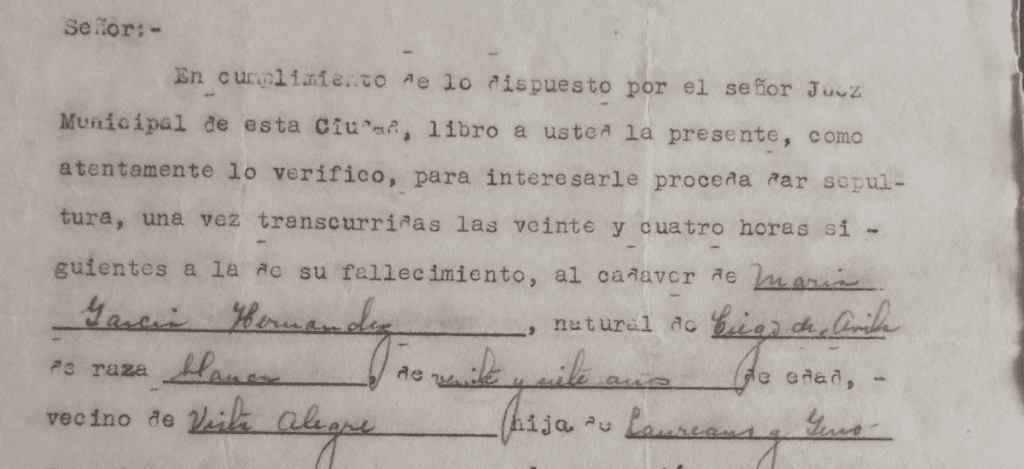 Señor:-
En cumplimiento de lo dispuesto por el señor Juez
Municipal de esta Ciudad, libro a usted la presente, como
atentamente lo verifico, para interesarle proceda dar sepul-
tura, una vez transcurridas las veinte y cuatro horas si -
guientes a la de su fallecimiento, al cadaver de Maria
Garcia Hernandez, natural de Ciego de Avila
de raza blanca, de años de edad, -
vecino de Vista Alegre hija de Laureano y